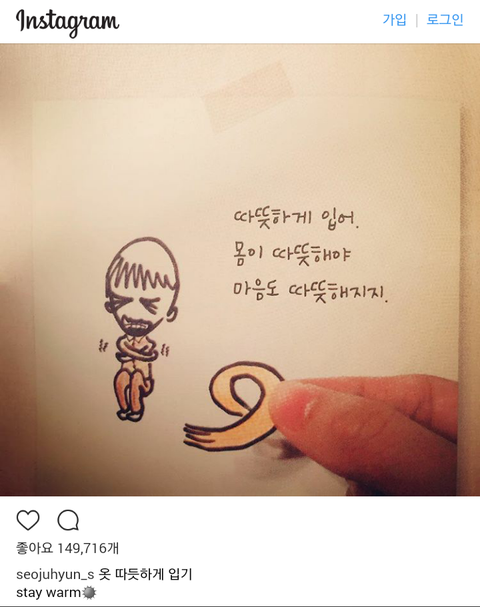 Instagram
가입 | 로그인
따뜻하게 입어.
몸이 따뜻해야
마음도 따뜻해지지.
좋아요 149,716개
seojuhyun_s 옷 따듯하게 입기
stay warm